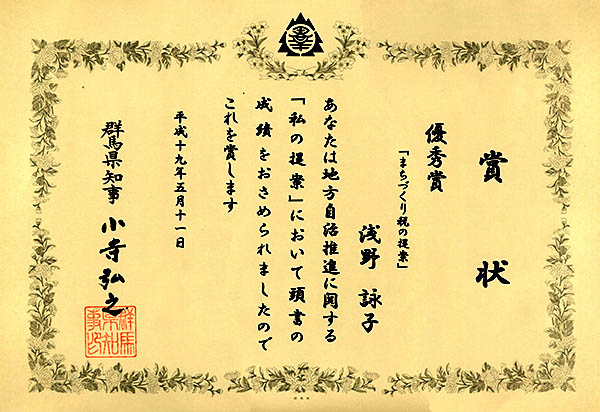 賞状
優秀賞
「まちづくり税の提案」
浅野 詠子
あなたは地方自治推進に関する
「私の提案」において頭書の
成績をおさめられましたので
これを賞します
平成十九年五月十一日
群馬県知事 小寺弘之
群馬
県知
事印